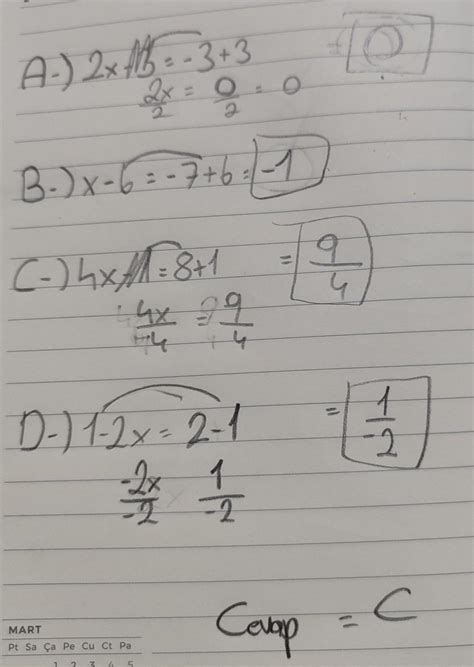 A-) 2x = -3+3 = 0
2x/2 = 0/2 = 0
B-) x-6 = -7+6 = -1
C-) 4x = 8+1 = 9/4
4x/4 = 9/4
D-) 1-2x = 2-1 = 1/-2
-2x/-2 1/-2
Cevap = C
MART
Pt Sa Ça Pe Cu Ct Pa
1 2 3 4 5